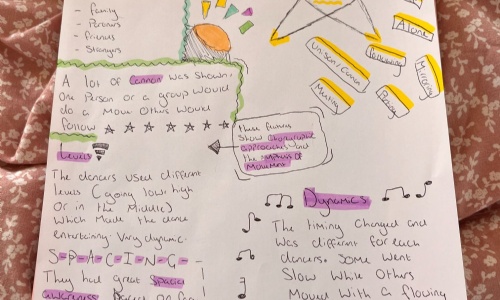 - family
- Partners
- friends
- Strangers
A lot of Cannon was Shown.
One Person or a group would
do a Move Others would
follow
these features
Show Choreographic
approaches and
the
Movement
Unison/Cannon
Alone
Following
Mirroring
Meeting
Levels
The dancers used different
levels (going low, high
Or in the Middle)
which Made the dance
entertaining. Very dynamic.
S-P-A-C-I-N-G-
They had great Spacial
awareness
Dynamics
The timing Changed and
was different for each
dancers. Some went
Slow While Others
Moved with a flowing